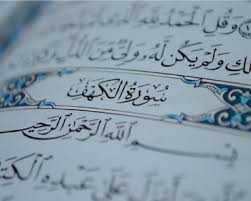 وَقُلِ ٱلْحَمْدُ لِلَّهِ
وَلَمْ يَكُن لَّهُۥ وَلِىٌّ مِّنَ
سُورَةُ الكَهْفِ
بِسْمِ ٱللَّهِ ٱلرَّحْمَٰنِ ٱلرَّحِيمِ
أَنزَلَ عَلَىٰ عَبْدِهِ ٱلْكِتَٰبَ